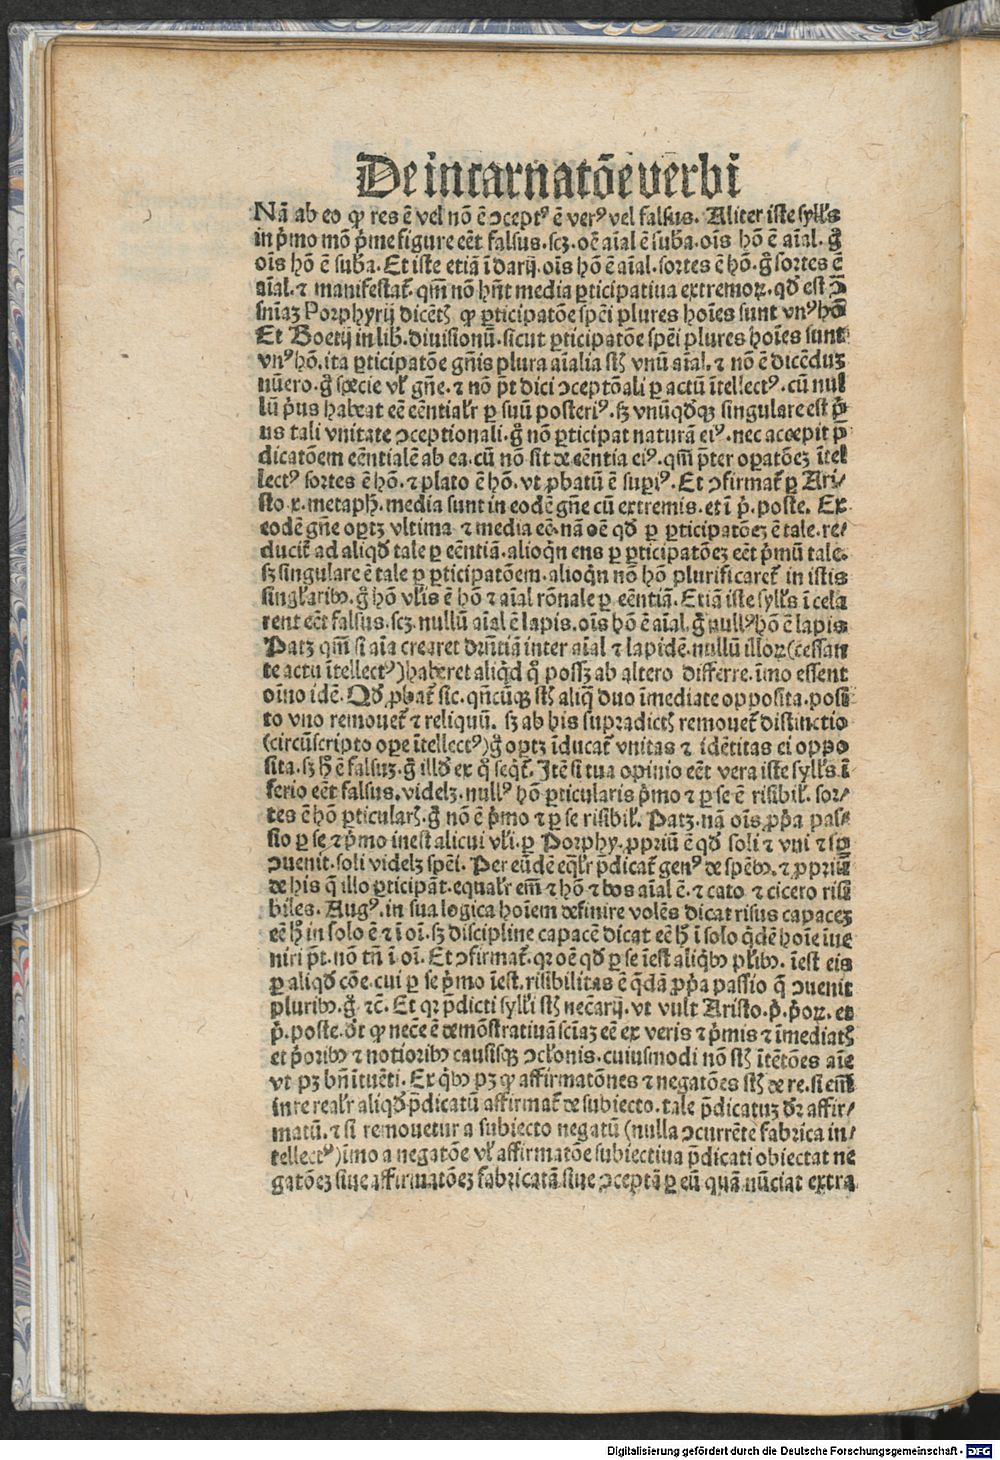 De incarnatōe verbi
Nā ab eo ꝙ res ē vel nō ē ↄceptꝰ ē verꝰ vel falsus. Aliter iste sylꝉs
in p̄mo mō p̄me figure eēt falsus. scꝫ. oē aīal ē suba. oīs hō ē aīal. g̊
oīs hō ē suba. Et iste etiā ī darij. oīs hō ē aīal. sortes ē hō. g̊ sortes ē
aīal. ⁊ manifestat̄. qm̄ nō hn̄t media ꝑticipatiua extremoꝝ. qd̄ est ↄ̄
snīaꝫ Porphyrij dicēt̄ ꝙ ꝑticipatōe spēi plures hoīes sunt vnꝰ hō
Et Boetij in lib̄. diuisionū. sicut ꝑticipatōe spēi plures hoīes sunt
vnꝰ hō. ita ꝑticipatōe gn̄is plura aīalia st̄ vnū aīal. ⁊ nō ē dicēduꝫ
nūero. g̊ specie vꝉ gn̄e. ⁊ nō p̄t dici ↄceptōali ꝑ actū ītellectꝰ. cū nul
lū p̄us habeat eē eēntialr̄ ꝑ suū posteriꝰ. sꝫ vnūqd̄qꝫ singulare est p̄
us tali vnitate ↄceptionali. g̊ nō ꝑticipat naturā eiꝰ. nec accepit p̄
dicatōem eēntialē ab ea. cū nō sit de eēntia eiꝰ. qm̄ p̄ter oꝑatōeꝫ ītel
lectꝰ sortes ē hō. ⁊ plato ē hō. vt ꝓbatū ē supiꝰ. Et ↄfirmat̄ ꝑ Ari/
sto. x. metaph̄. media sunt in eodē gn̄e cū extremis. et ī p̄. poste. Ex
eodē gn̄e oꝑtꝫ vltima ⁊ media eē. nā oē qd̄ ꝑ ꝑticipatōeꝫ ē tale. re/
ducit̄ ad aliqd̄ tale ꝑ eēntiā. alioqn̄ ens ꝑ ꝑticipatōeꝫ eēt p̄mū tale.
sꝫ singulare ē tale ꝑ ꝑticipatōem. alioqn̄ nō hō plurificaret̄ in istis
singꝉaribꝰ. g̊ hō vꝉis ē hō ⁊ aīal rōnale ꝑ eēntiā. Etiā iste sylꝉs ī cela
rent eēt falsus. scꝫ. nullū aīal ē lapis. oīs hō ē aīal. g̊ nullꝰ hō ē lapis
Patꝫ qm̄ si aīa crearet dn̄tiā inter aīal ⁊ lapidē. nullū illoꝝ (cessan
te actu ītellectꝰ) haberet aliqd̄ q̊ possꝫ ab altero differre. īmo essent
oīno idē. Qd̄ ꝓbat̄ sic. qn̄cūqꝫ st̄ aliq̄ duo īmediate opposita. posi
to vno remouet̄ ⁊ reliquū. sꝫ ab his supradict̄ remouet̄ distinctio
(circūscripto ope ītellectꝰ) g̊ oꝑtꝫ īducat̄ vnitas ⁊ idētitas ei oppo
sita. sꝫ h̄ ē falsuꝫ. g̊ illd̄ ex q̊ seqt̄. Itē si tua opinio eēt vera iste sylꝉs ī
ferio eēt falsus. videlꝫ. nullꝰ hō ꝑticularis p̄mo ⁊ ꝑ se ē risibiꝉ. sor/
tes ē hō ꝑticular̄. g̊ nō ē p̄mo ⁊ ꝑ se risibiꝉ. Patꝫ. nā oīs ꝓp̄a pas/
sio ꝑ se ⁊ p̄mo inest alicui vꝉi. ꝑ Porphy. ꝓpriū ē qd̄ soli ⁊ vni ⁊ sꝑ
ↄuenit. soli videlꝫ spēi. Per eūdē eqꝉr p̄dicat̄ genꝰ de spēbꝰ. ⁊ ꝓpriū
de his q̄ illo ꝑticipāt. equalr̄ em̄ ⁊ hō ⁊ bos aīal ē. ⁊ cato ⁊ cicero risi
biles. Augꝰ. in sua logica hoīem definire volēs dicat risus capaceꝫ
eē h̄ in solo ē ⁊ ī oī. sꝫ discipline capacē dicat eē h̄ ī solo q̄dē hoīe īue
niri p̄t. nō tn̄ ī oī. Et ↄfirmat̄. qꝛ oē qd̄ ꝑ se īest aliqbꝰ pꝉibꝰ. īest eis
ꝑ aliqd̄ cōe. cui ꝑ se p̄mo īest. risibilitas ē q̄dā ꝓp̄a passio q̄ ↄuenit
pluribꝰ. g̊ ⁊c̄. Et qꝛ p̄dicti sylꝉi st̄ nec̄arij. vt vult Aristo. p̄. p̄oꝝ. et
p̄. poste. d̄t ꝙ nece ē demōstratiuā sciaꝫ eē ex veris ⁊ p̄mis ⁊ īmediat̄
et p̄oribꝰ ⁊ notioribꝰ causisqꝫ ↄclōnis. cuiusmodi nō st̄ ītētōes aīe
vt pꝫ bn̄ ītuēti. Ex qbꝰ pꝫ ꝙ affirmatōnes ⁊ negatōes st̄ de re. si em̄
in re realr̄ aliqd̄ p̄dicatū affirmat̄ de subiecto. tale p̄dicatuꝫ d̄r affir/
matū. ⁊ si remouetur a subiecto negatū (nulla ↄcurrēte fabrica in/
tellectꝰ) īmo a negatōe vꝉ affirmatōe subiectiua p̄dicati obiectat ne
gatōeꝫ siue affirmatōeꝫ fabricatā siue ↄceptā ꝑ eū quā nūciat extra
Digitalisierung gefördert durch die Deutsche Forschungsgemeinschaft - DFG